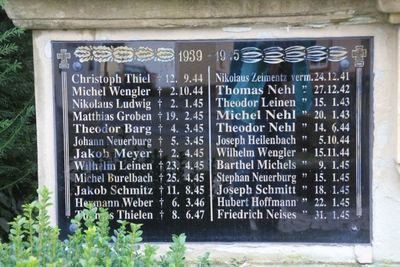 1939 - 1945
Christoph Thiel † 12. 9.44
Michel Wengler † 2.10.44
Nikolaus Ludwig † 2. 1.45
Matthias Groben † 19. 2.45
Theodor Barg † 4. 3.45
Johann Neuerburg † 5. 3.45
Jakob Meyer † 2. 4.45
Wilhelm Leinen † 23. 4.45
Michel Burelbach † 25. 4.45
Jakob Schmitz † 11. 8.45
Hermann Weber † 6. 3.46
Thomas Thielen † 8. 6.47
Nikolaus Zeimentz verm. 24.12.41
Thomas Nehl " 27.12.42
Theodor Leinen " 15. 1.43
Michel Nehl " 20. 1.43
Theodor Nehl " 14. 6.44
Joseph Heilenbach " 5.10.44
Wilhelm Wengler " 15.11.44
Barthel Michels " 3. 1.45
Stephan Neuerburg " 15. 1.45
Joseph Schmitt " 18. 1.45
Hubert Hoffmann " 22. 1.45
Friedrich Neises " 31. 1.45